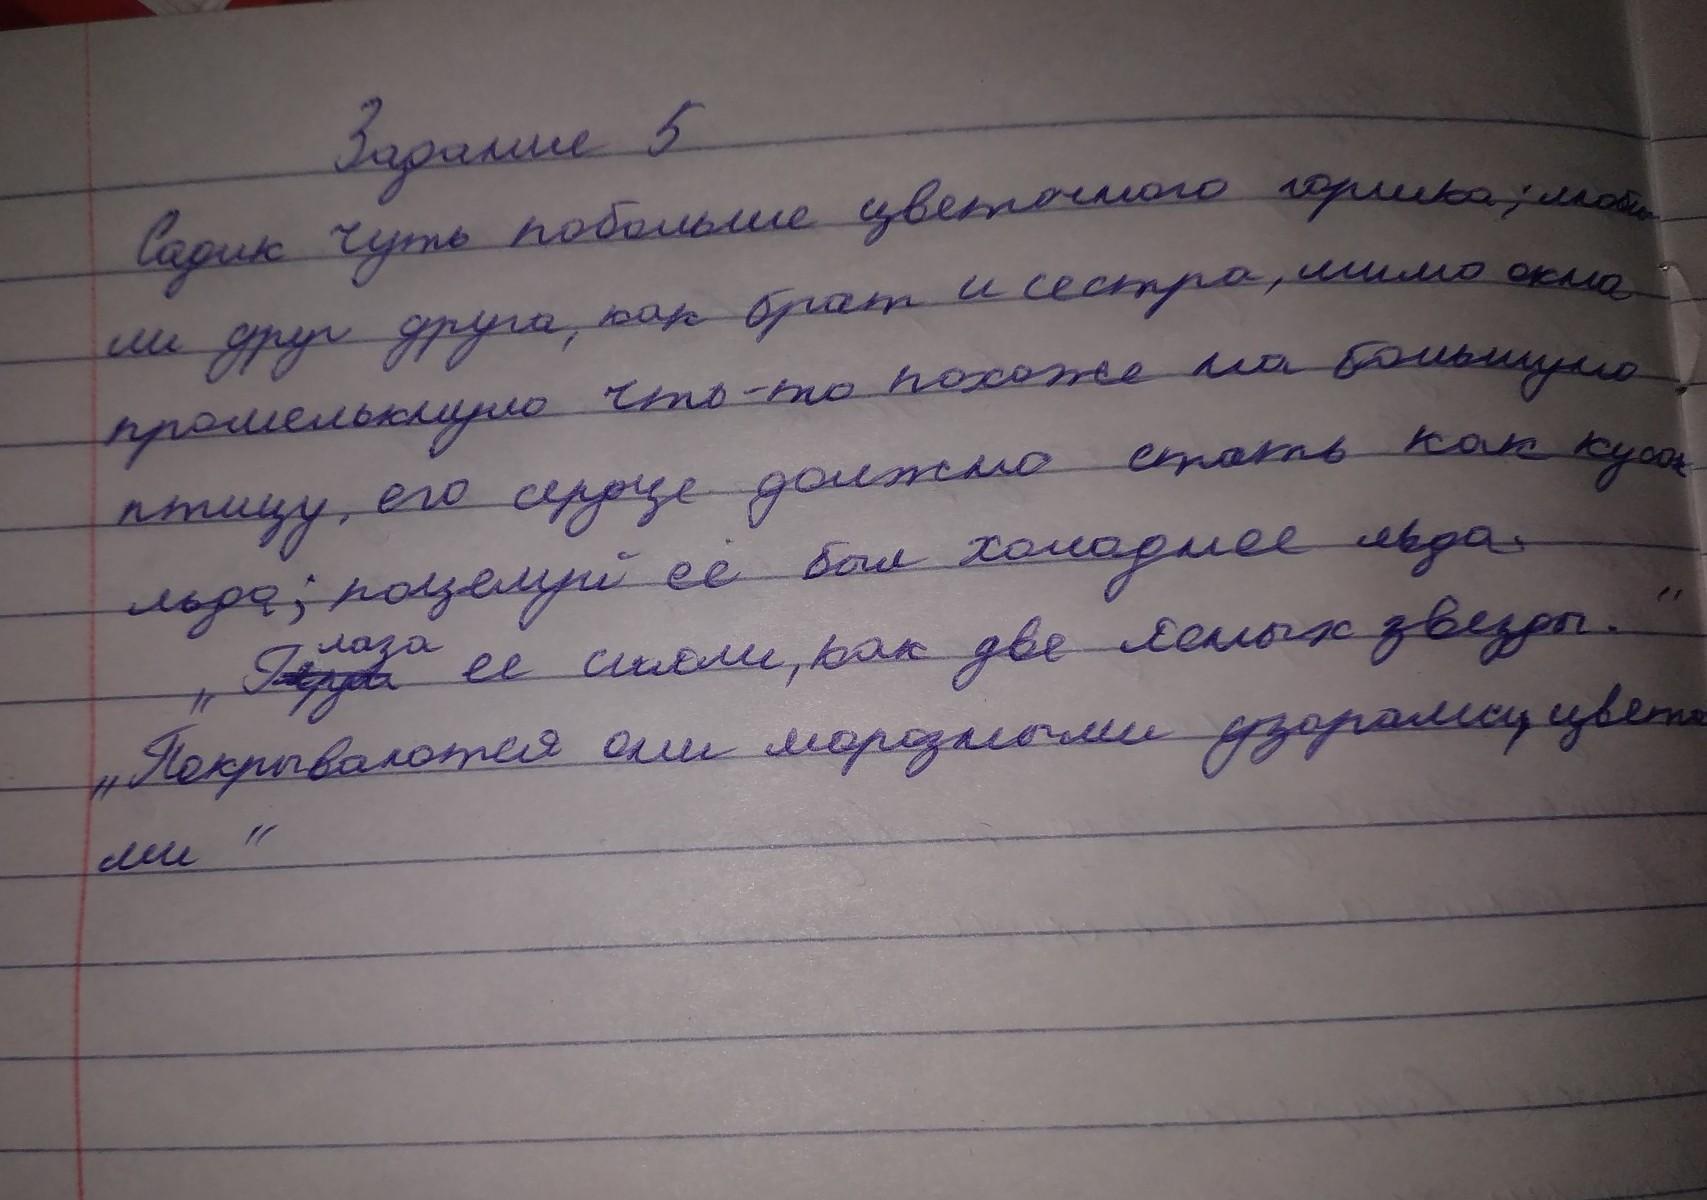 Задание 5
Садик чуть побольше цветочного горшка; люби
ли друг друга, как брат и сестра, мимо окна
промелькнуло что-то похоже на большую
птицу, его сердце должно стать как кусок
льда; поцелуй её был холоднее льда.
„Глаза ее сияли, как две ясных звезды."
„Покрываются они морозными узорами, цвета
ми"